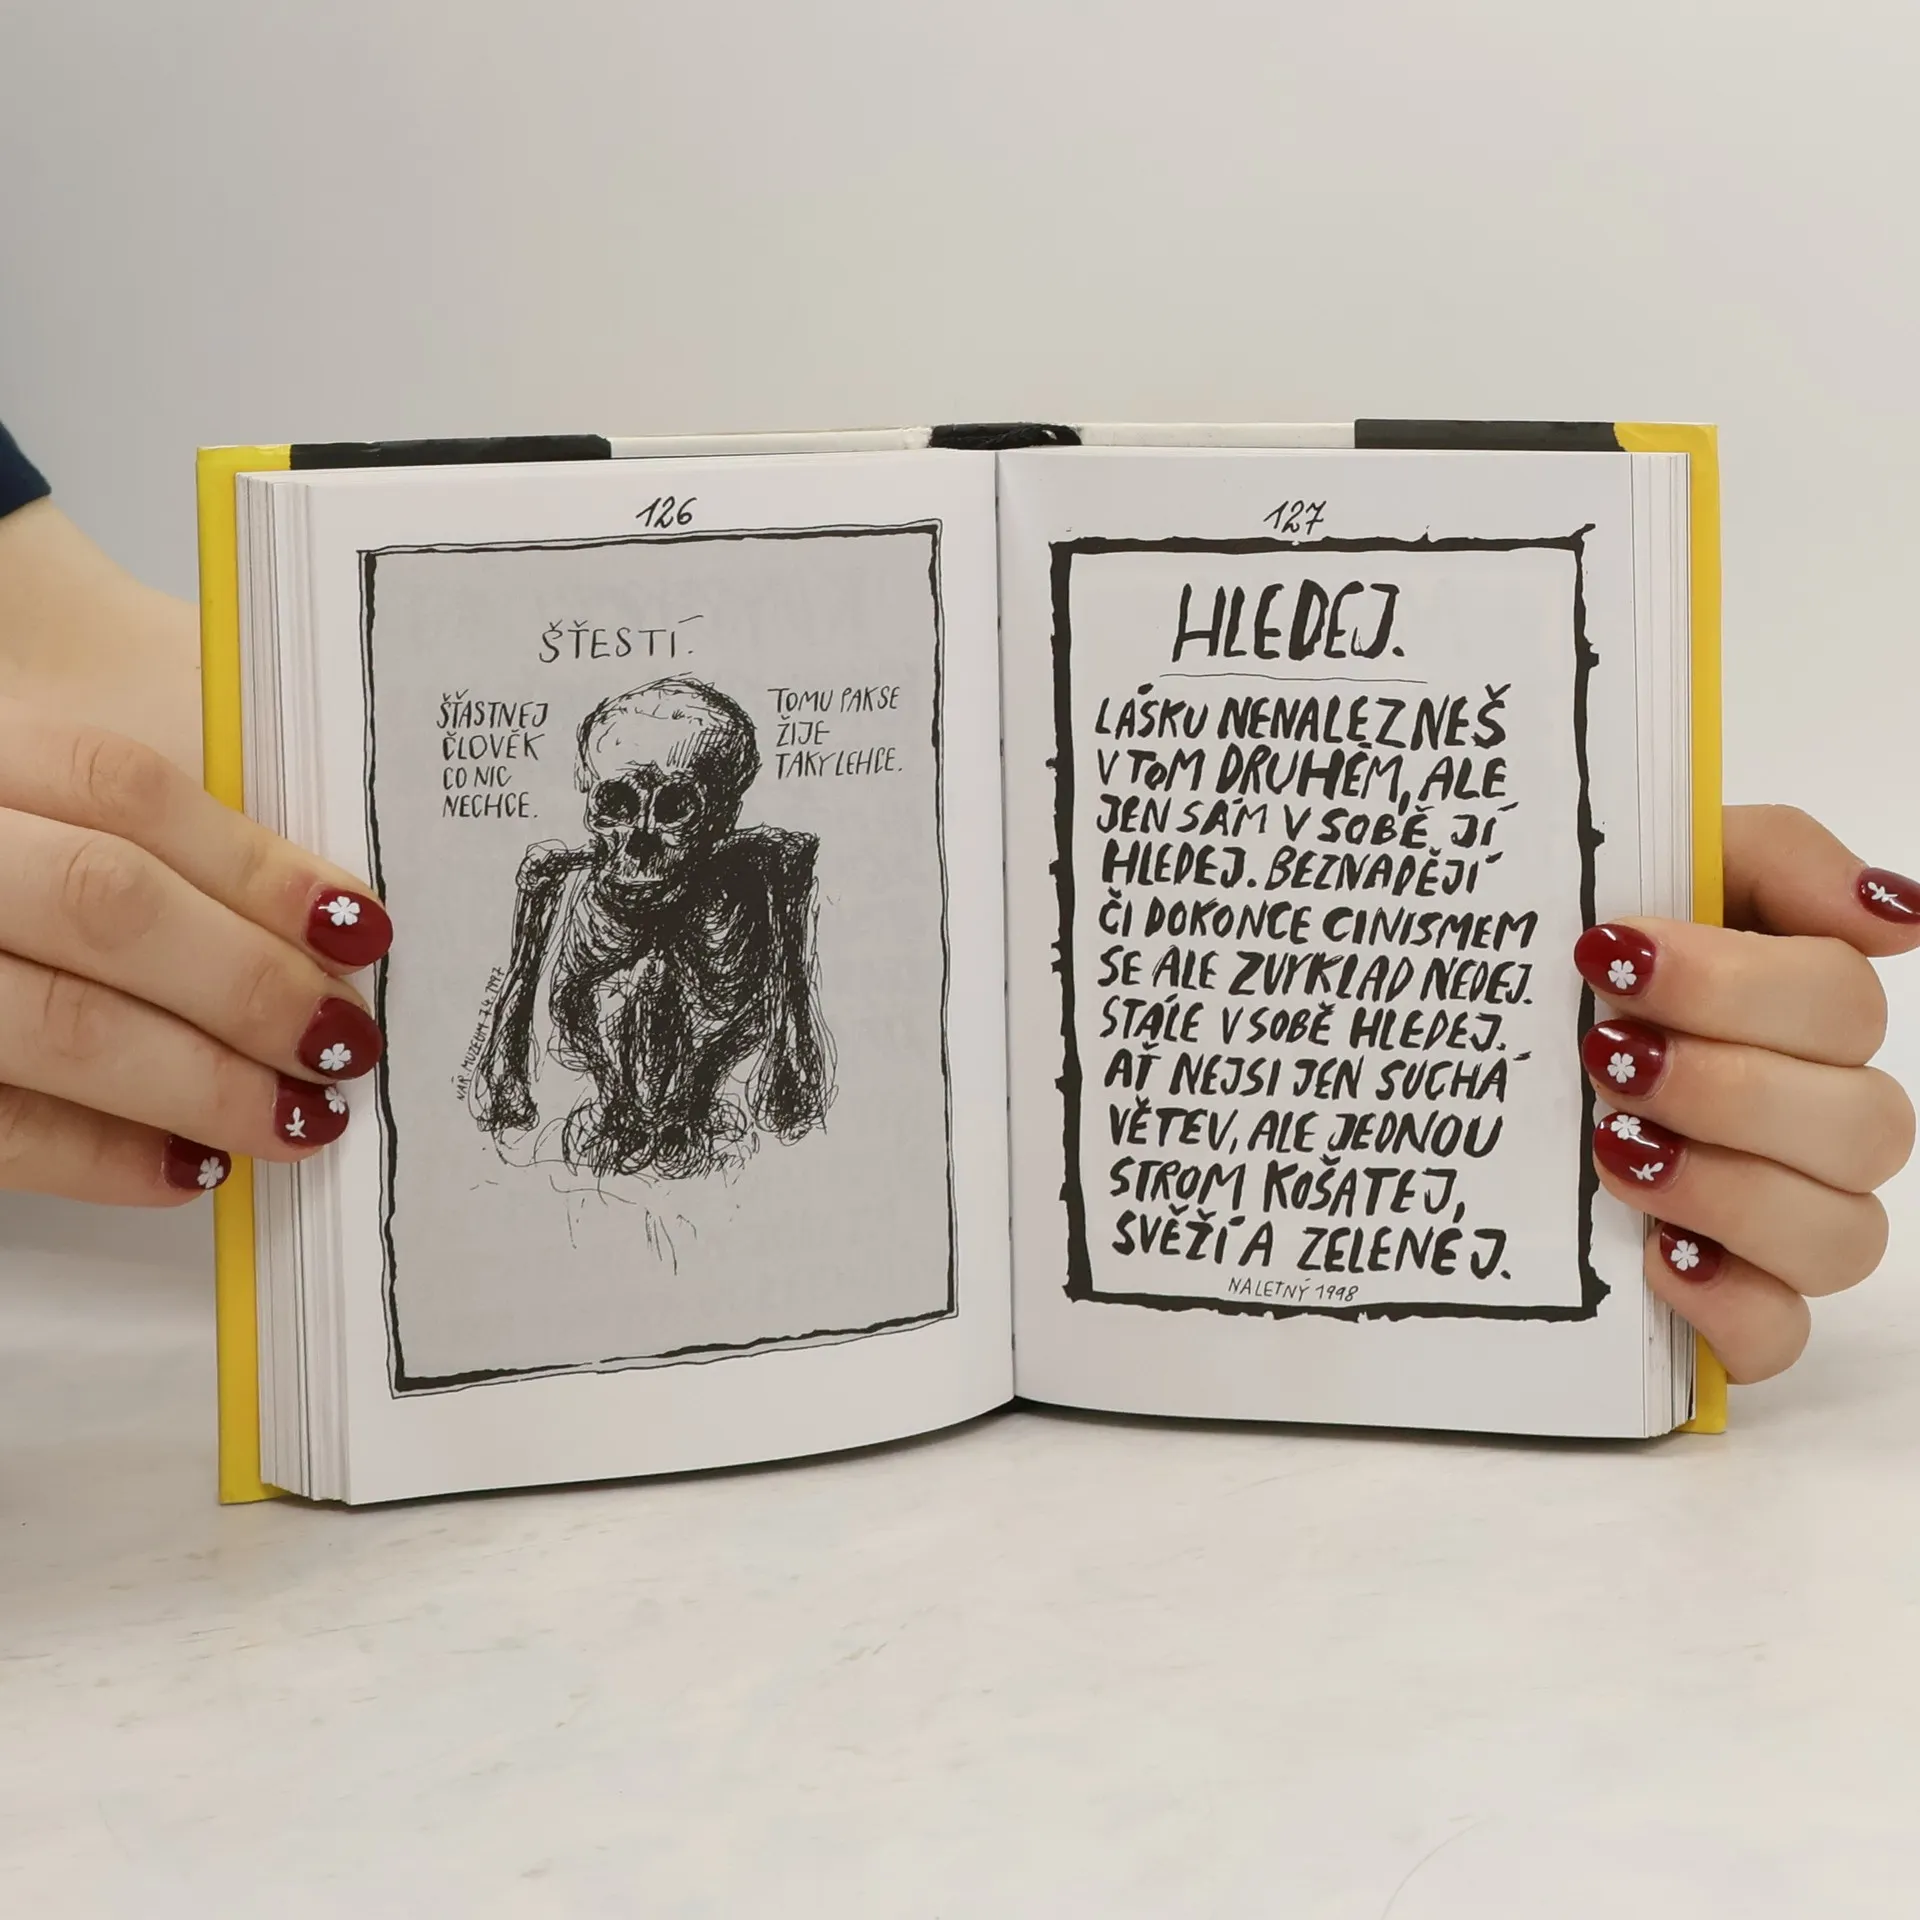 126
ŠŤESTÍ.
ŠŤASTNEJ
ČLOVĚK
CO NIC
NECHCE.
TOMU PAK SE
ŽIJE
TAKY LEHCE.
NÁR. MUZEUM 7.4.1997
127
HLEDEJ.
LÁSKU NENALEZNEŠ
V TOM DRUHÉM, ALE
JEN SÁM V SOBĚ JÍ
HLEDEJ. BEZNADĚJÍ
ČI DOKONCE CINISMEM
SE ALE ZVYKLAD NEDEJ.
STÁLE V SOBĚ HLEDEJ.
AŤ NEJSI JEN SUCHÁ
VĚTEV, ALE JEDNOU
STROM KOŠATEJ,
SVĚŽÍ A ZELENEJ.
NA LETNÝ 1998